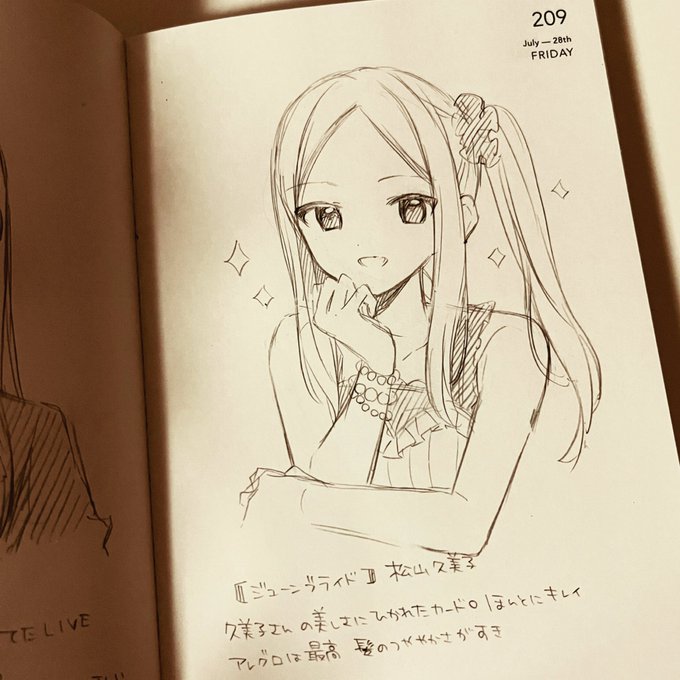 209
July — 28th
FRIDAY
【ジューンブライド】 松山久美子
久美子さんの美しさにひかれたカード。ほんとにキレイ
アレグロは最高 髪のつややかさがすき
てたLIVE